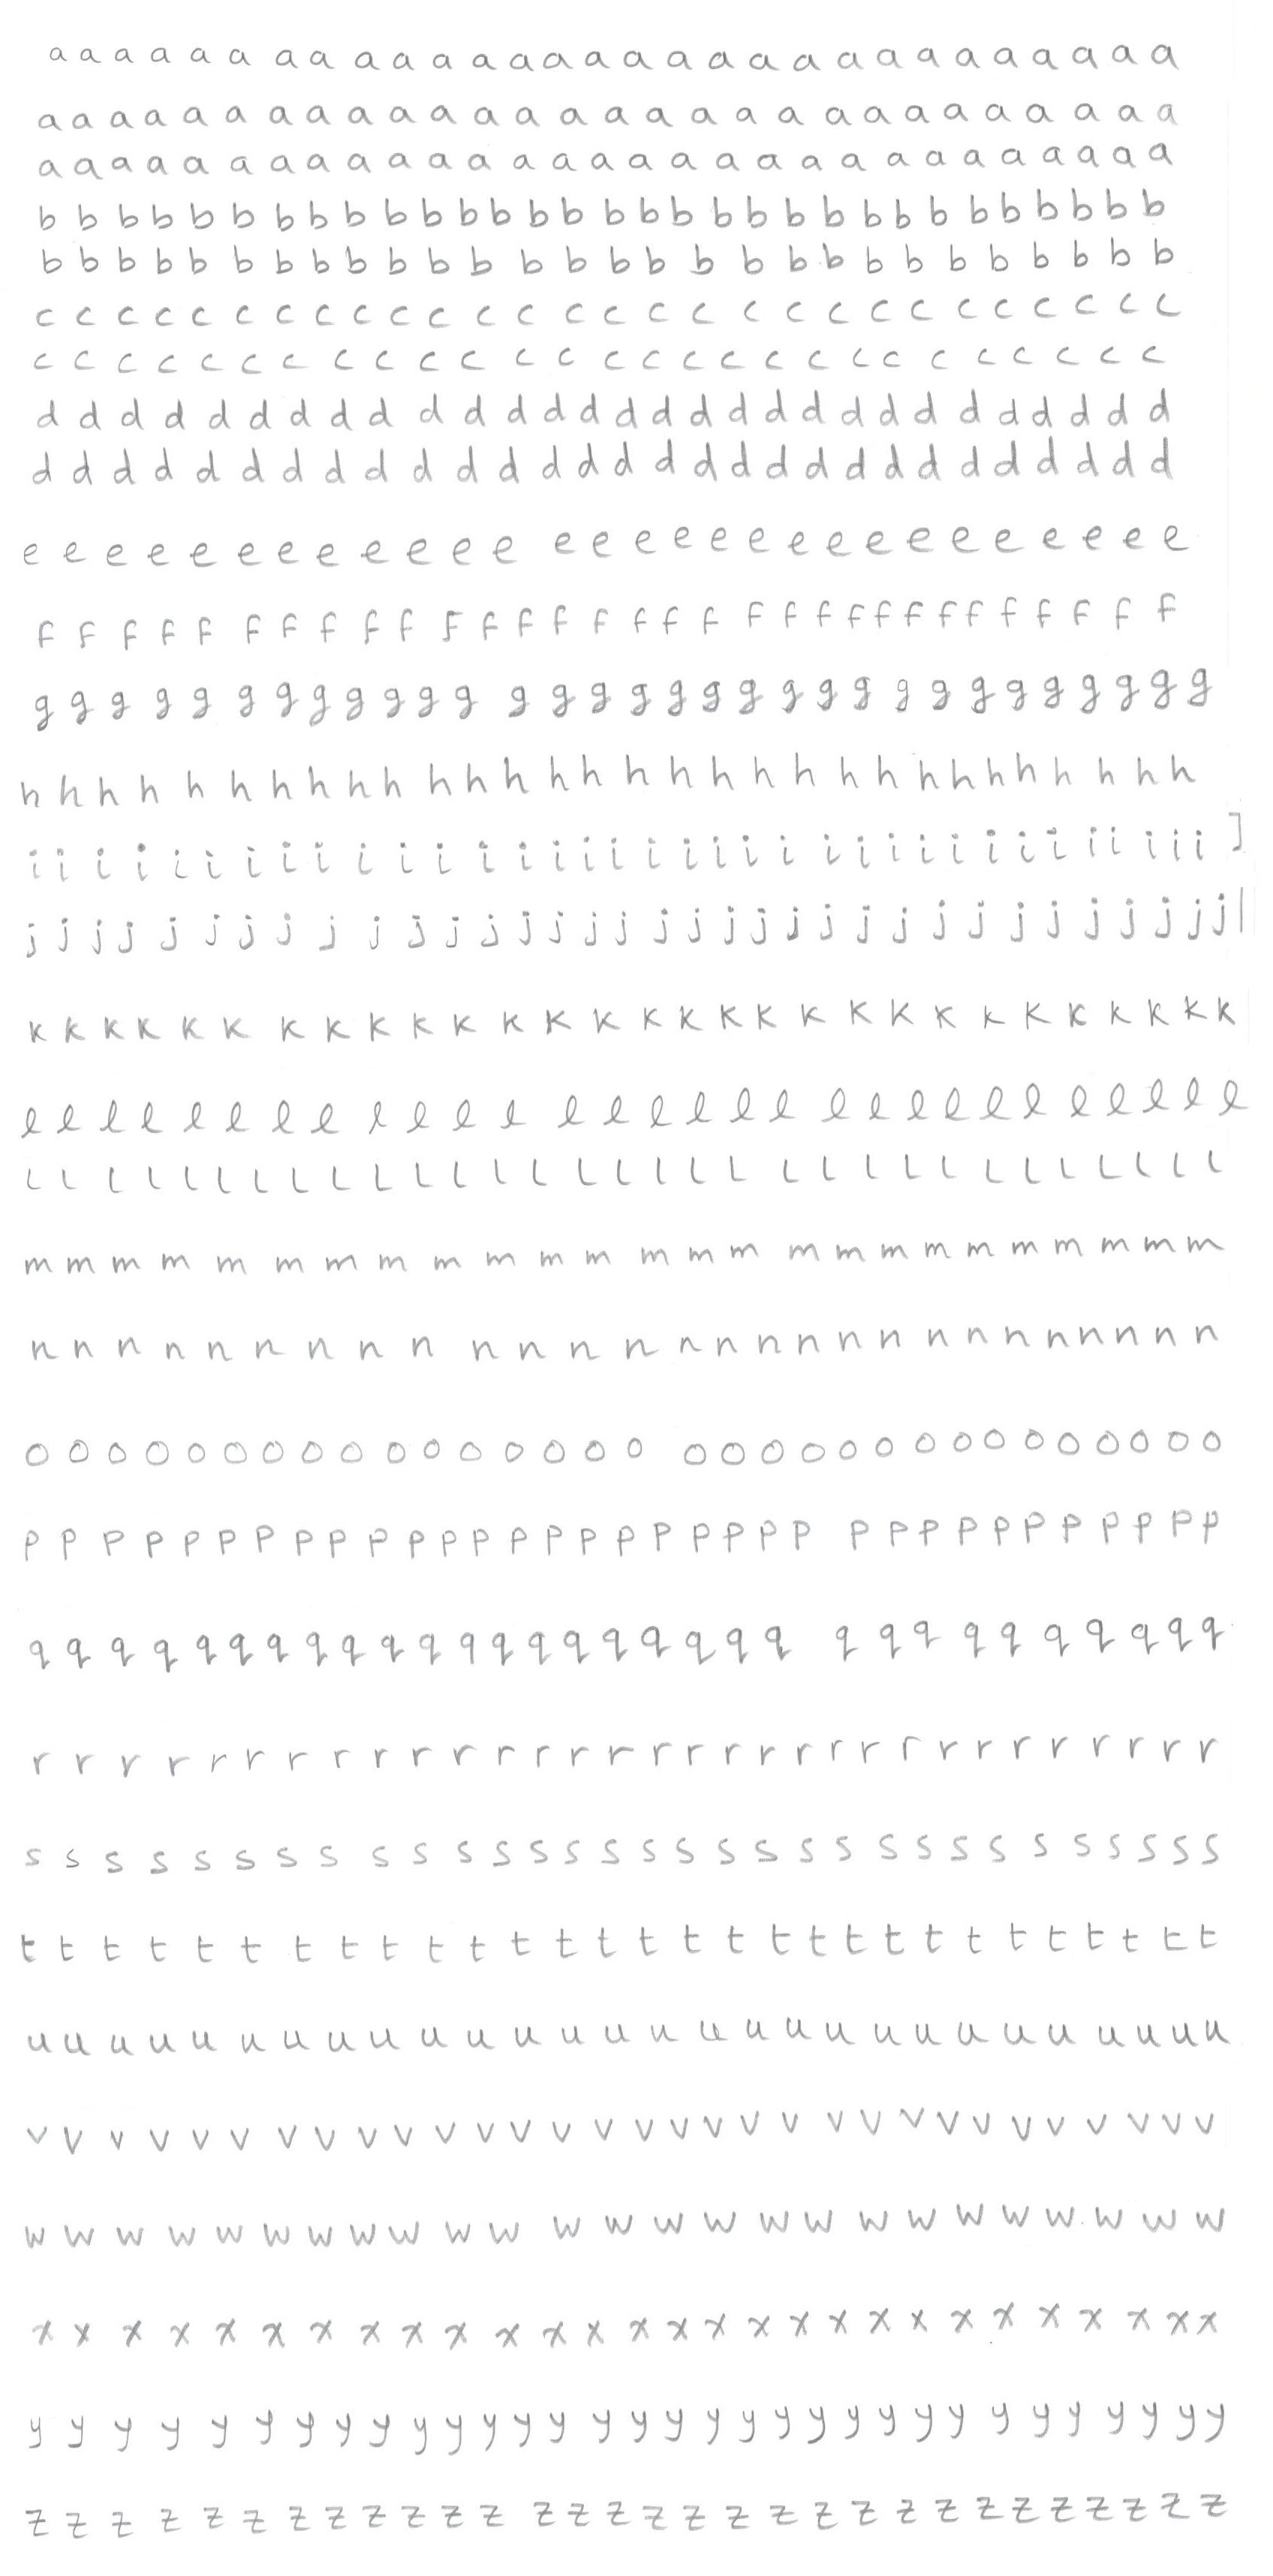 a a a a a a a a a a a a a a a a a a a a a a a a a a a a a
a a a a a a a a a a a a a a a a a a a a a a a a a a a a
a a a a a a a a a a a a a a a a a a a a a a a a a a a a a
b b b b b b b b b b b b b b b b b b b b b b b b b b b b b b b
b b b b b b b b b b b b b b b b b b b b b b b b b b b b
c c c c c c c c c c c c c c c c c c c c c c c c c c c c
c c c c c c c c c c c c c c c c c c c c c c c c c c c
d d d d d d d d d d d d d d d d d d d d d d d d d d d d d
d d d d d d d d d d d d d d d d d d d d d d d d d d d d d
e e e e e e e e e e e e e e e e e e e e e e e e e e e e
f f f f f f f f f f f f f f f f f f f f f f f f f f f f f f f
g g g g g g g g g g g g g g g g g g g g g g g g g g g g g g g
h h h h h h h h h h h h h h h h h h h h h h h h h h h h h h
i i i i i i i i i i i i i i i i i i i i i i i i i i i i i i i i i i i ]
j j j j j j j j j j j j j j j j j j j j j j j j j j j j j j j j j j |
k k k k k k k k k k k k k k k k k k k k k k k k k k k k k
l l l l l l l l l l l l l l l l l l l l l l l l l l l l l
l l l l l l l l l l l l l l l l l l l l l l l l l l l l l l l
m m m m m m m m m m m m m m m m m m m m m m m m m
n n n n n n n n n n n n n n n n n n n n n n n n n n n
o o o o o o o o o o o o o o o o o o o o o o o o o o o o o o o
p p p p p p p p p p p p p p p p p p p p p p p p p p p p p p p p p
q q q q q q q q q q q q q q q q q q q q q q q q q q q q q q
r r r r r r r r r r r r r r r r r r r r r r r r r r r r r r r
s s s s s s s s s s s s s s s s s s s s s s s s s s s s s s s
t t t t t t t t t t t t t t t t t t t t t t t t t t t t t
u u u u u u u u u u u u u u u u u u u u u u u u u u u u
v v v v v v v v v v v v v v v v v v v v v v v v v v v v v v v
w w w w w w w w w w w w w w w w w w w w w w w w w
x x x x x x x x x x x x x x x x x x x x x x x x x x x x
y y y y y y y y y y y y y y y y y y y y y y y y y y y y y y y y
z z z z z z z z z z z z z z z z z z z z z z z z z z z z z z